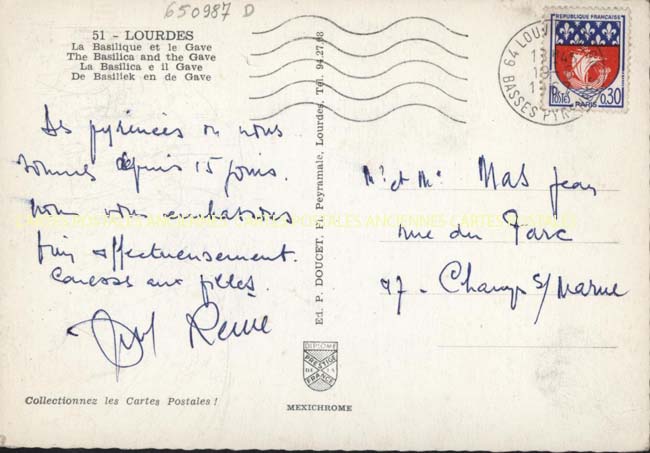 650987 D
51 - LOURDES
La Basilique et le Gave
The Basilica and the Gave
La Basilica e il Gave
De Basiliek en de Gave
Des pyrénées ou nous
sommes depuis 15 jours.
nous vous embrassons
bien affectueusement.
Caresses aux filles.
René
Collectionnez les Cartes Postales !
Ed. P. DOUCET, Pl. Peyramale, Lourdes, Tél. 94.27.08
DIPLOME
PRESTIGE
DE LA
FRANCE
MEXICHROME
CARTES POSTALES ANCIENNES
64 LOU
BASSES PYR
REPUBLIQUE FRANÇAISE
POSTES
0,30
PARIS
Mr et Me Mas Jean
rue du Parc
77 - Champs s/ Marne